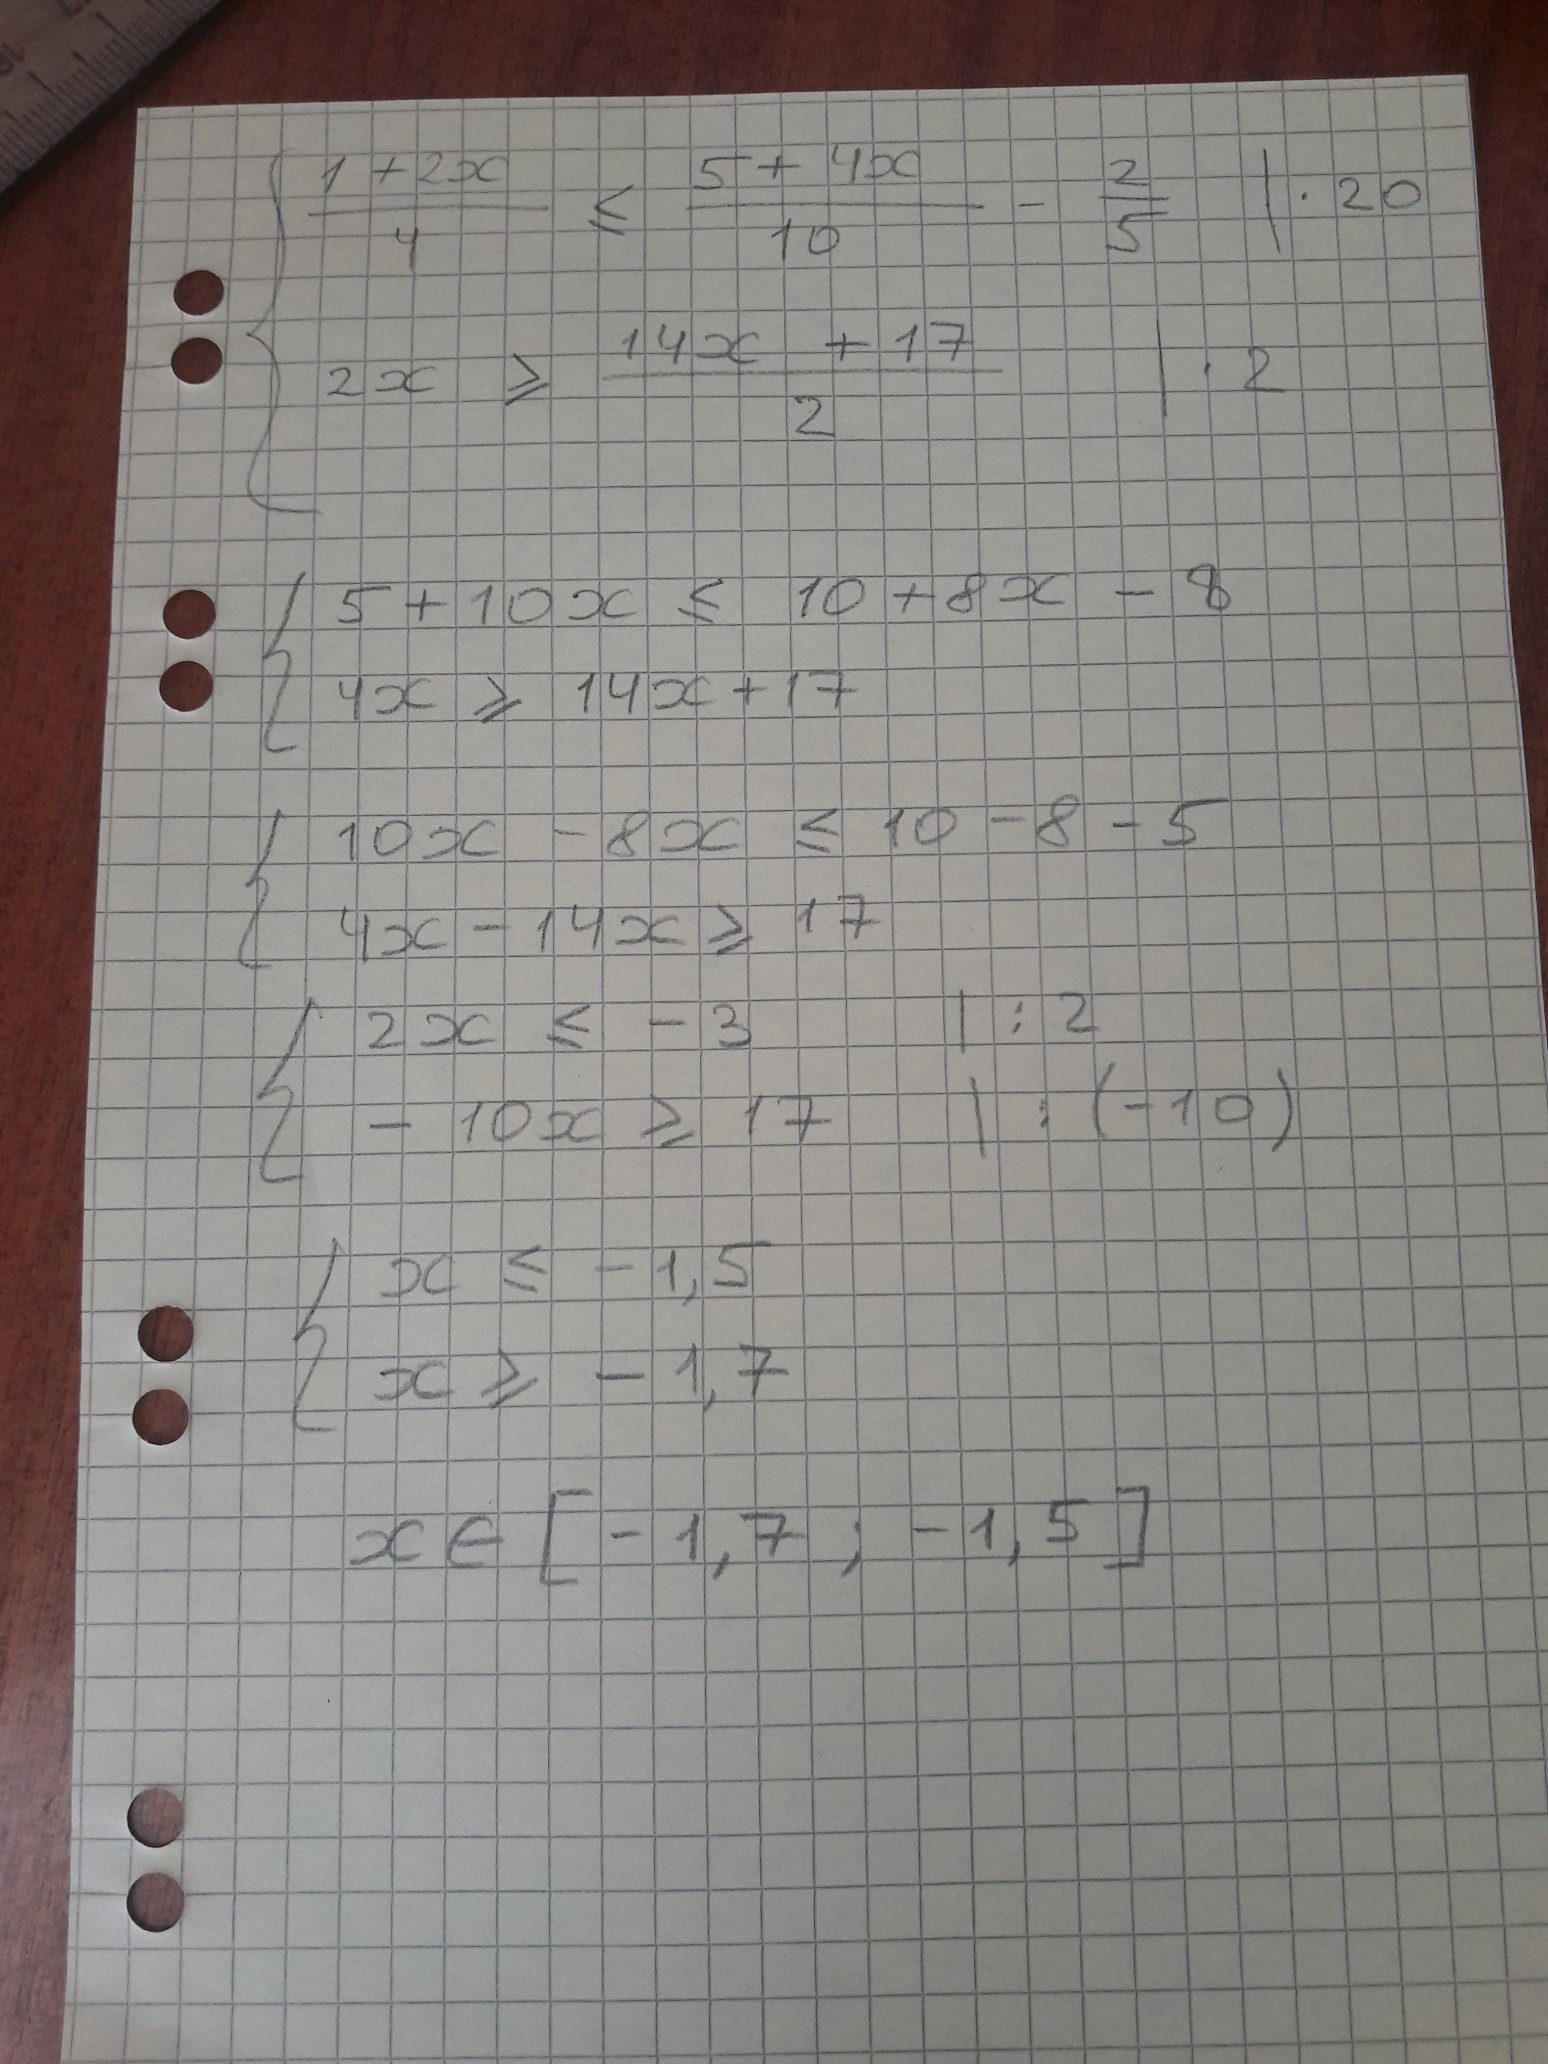 { (1 + 2x)/4 ≤ (5 + 4x)/10 - 2/5 | · 20
2x ≥ (14x + 17)/2 | · 2
{ 5 + 10x ≤ 10 + 8x - 8
4x ≥ 14x + 17
{ 10x - 8x ≤ 10 - 8 - 5
4x - 14x ≥ 17
{ 2x ≤ - 3 | : 2
- 10x ≥ 17 | : (-10)
{ x ≤ - 1,5
x ≥ - 1,7
x ∈ [ - 1,7 ; - 1,5 ]